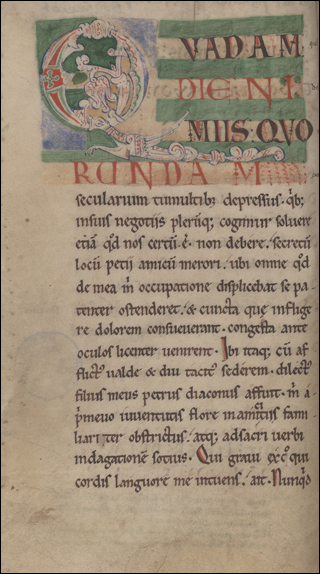 QVADAM
DIE NI
MIIS. QVO
RUNDAM
secularium tumultib; depressus. qͥb;
insuis negotiis pleriq; cogimur soluere
etiā qd nos certū .ē. non debere. secretū
locū petii amicū merori. ubi omne qd
de mea m̄ occupatione displicebat se pa-
tenter ostenderet. & cuncta que inflige
re dolorem consueuerant. congesta ante
oculos licenter uenirent. Ibi itaq; cū af-
flictꝰ ualde & diu tacitꝰ sederem. dilectꝰ
filius meus petrus diaconus affuit. m̄ a
pͥmeuo iuuentutis flore inamicitiis fami
liariter obstrictus. atq; adsacri uerbi
indagationē sotius. Qui graui exc͡oqui
cordis languore me intuens. ait. Nunqd